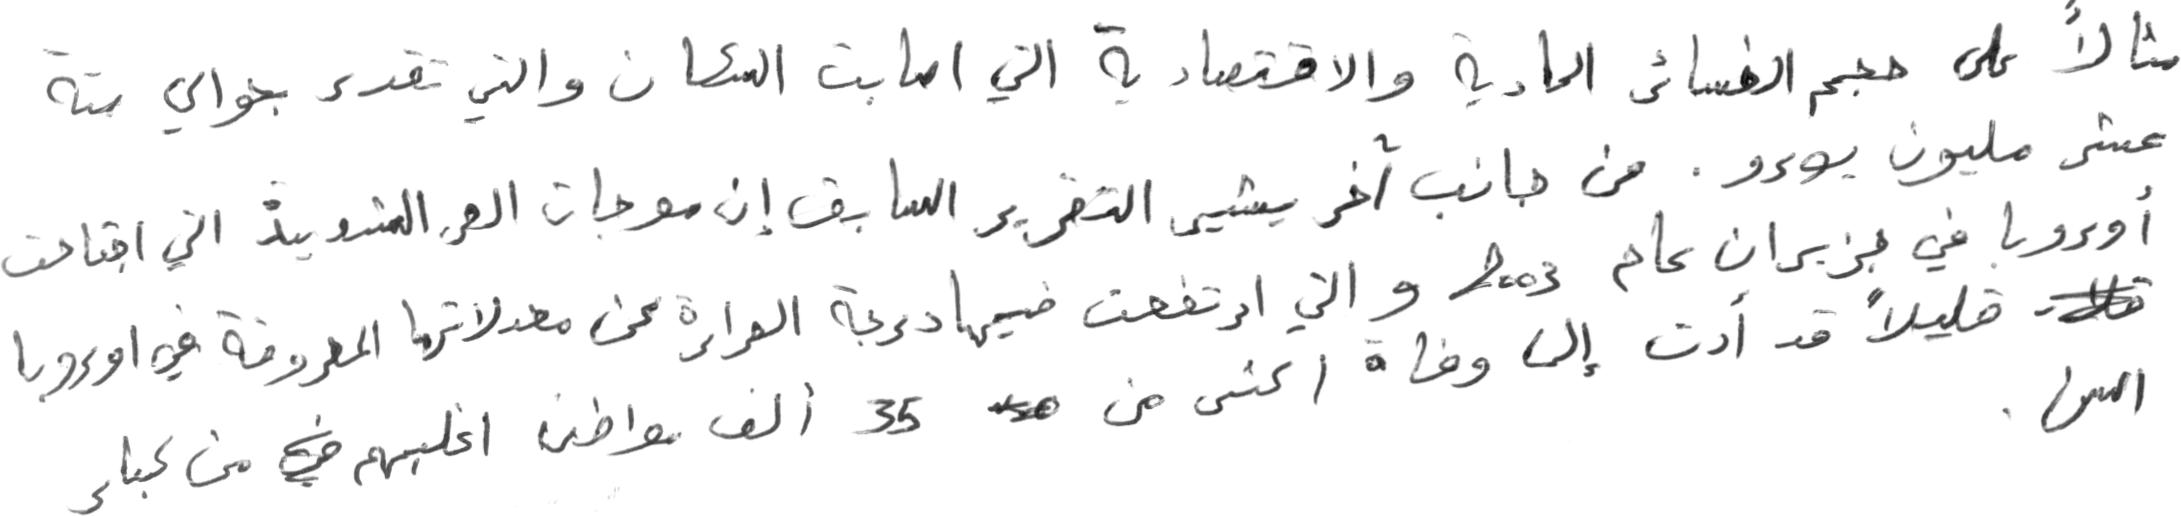 مثالاً على حجم الخسائر المادية والاقتصادية التي اصابت السكان والتي تقدر بحوالي ستة
عشر مليون يورو. من جانب آخر يشير التقرير السابق إن موجات الحر الشديدة التي اجتاحت
أوروبا في حزيران عام 2003 والتي ارتفعت فيها درجة الحرارة عن معدلاتها المعروفة في اوروبا
قليلاً قد أدت إلى وفاة اكثر من 35 ألف مواطن اغلبهم من كبار
السن.